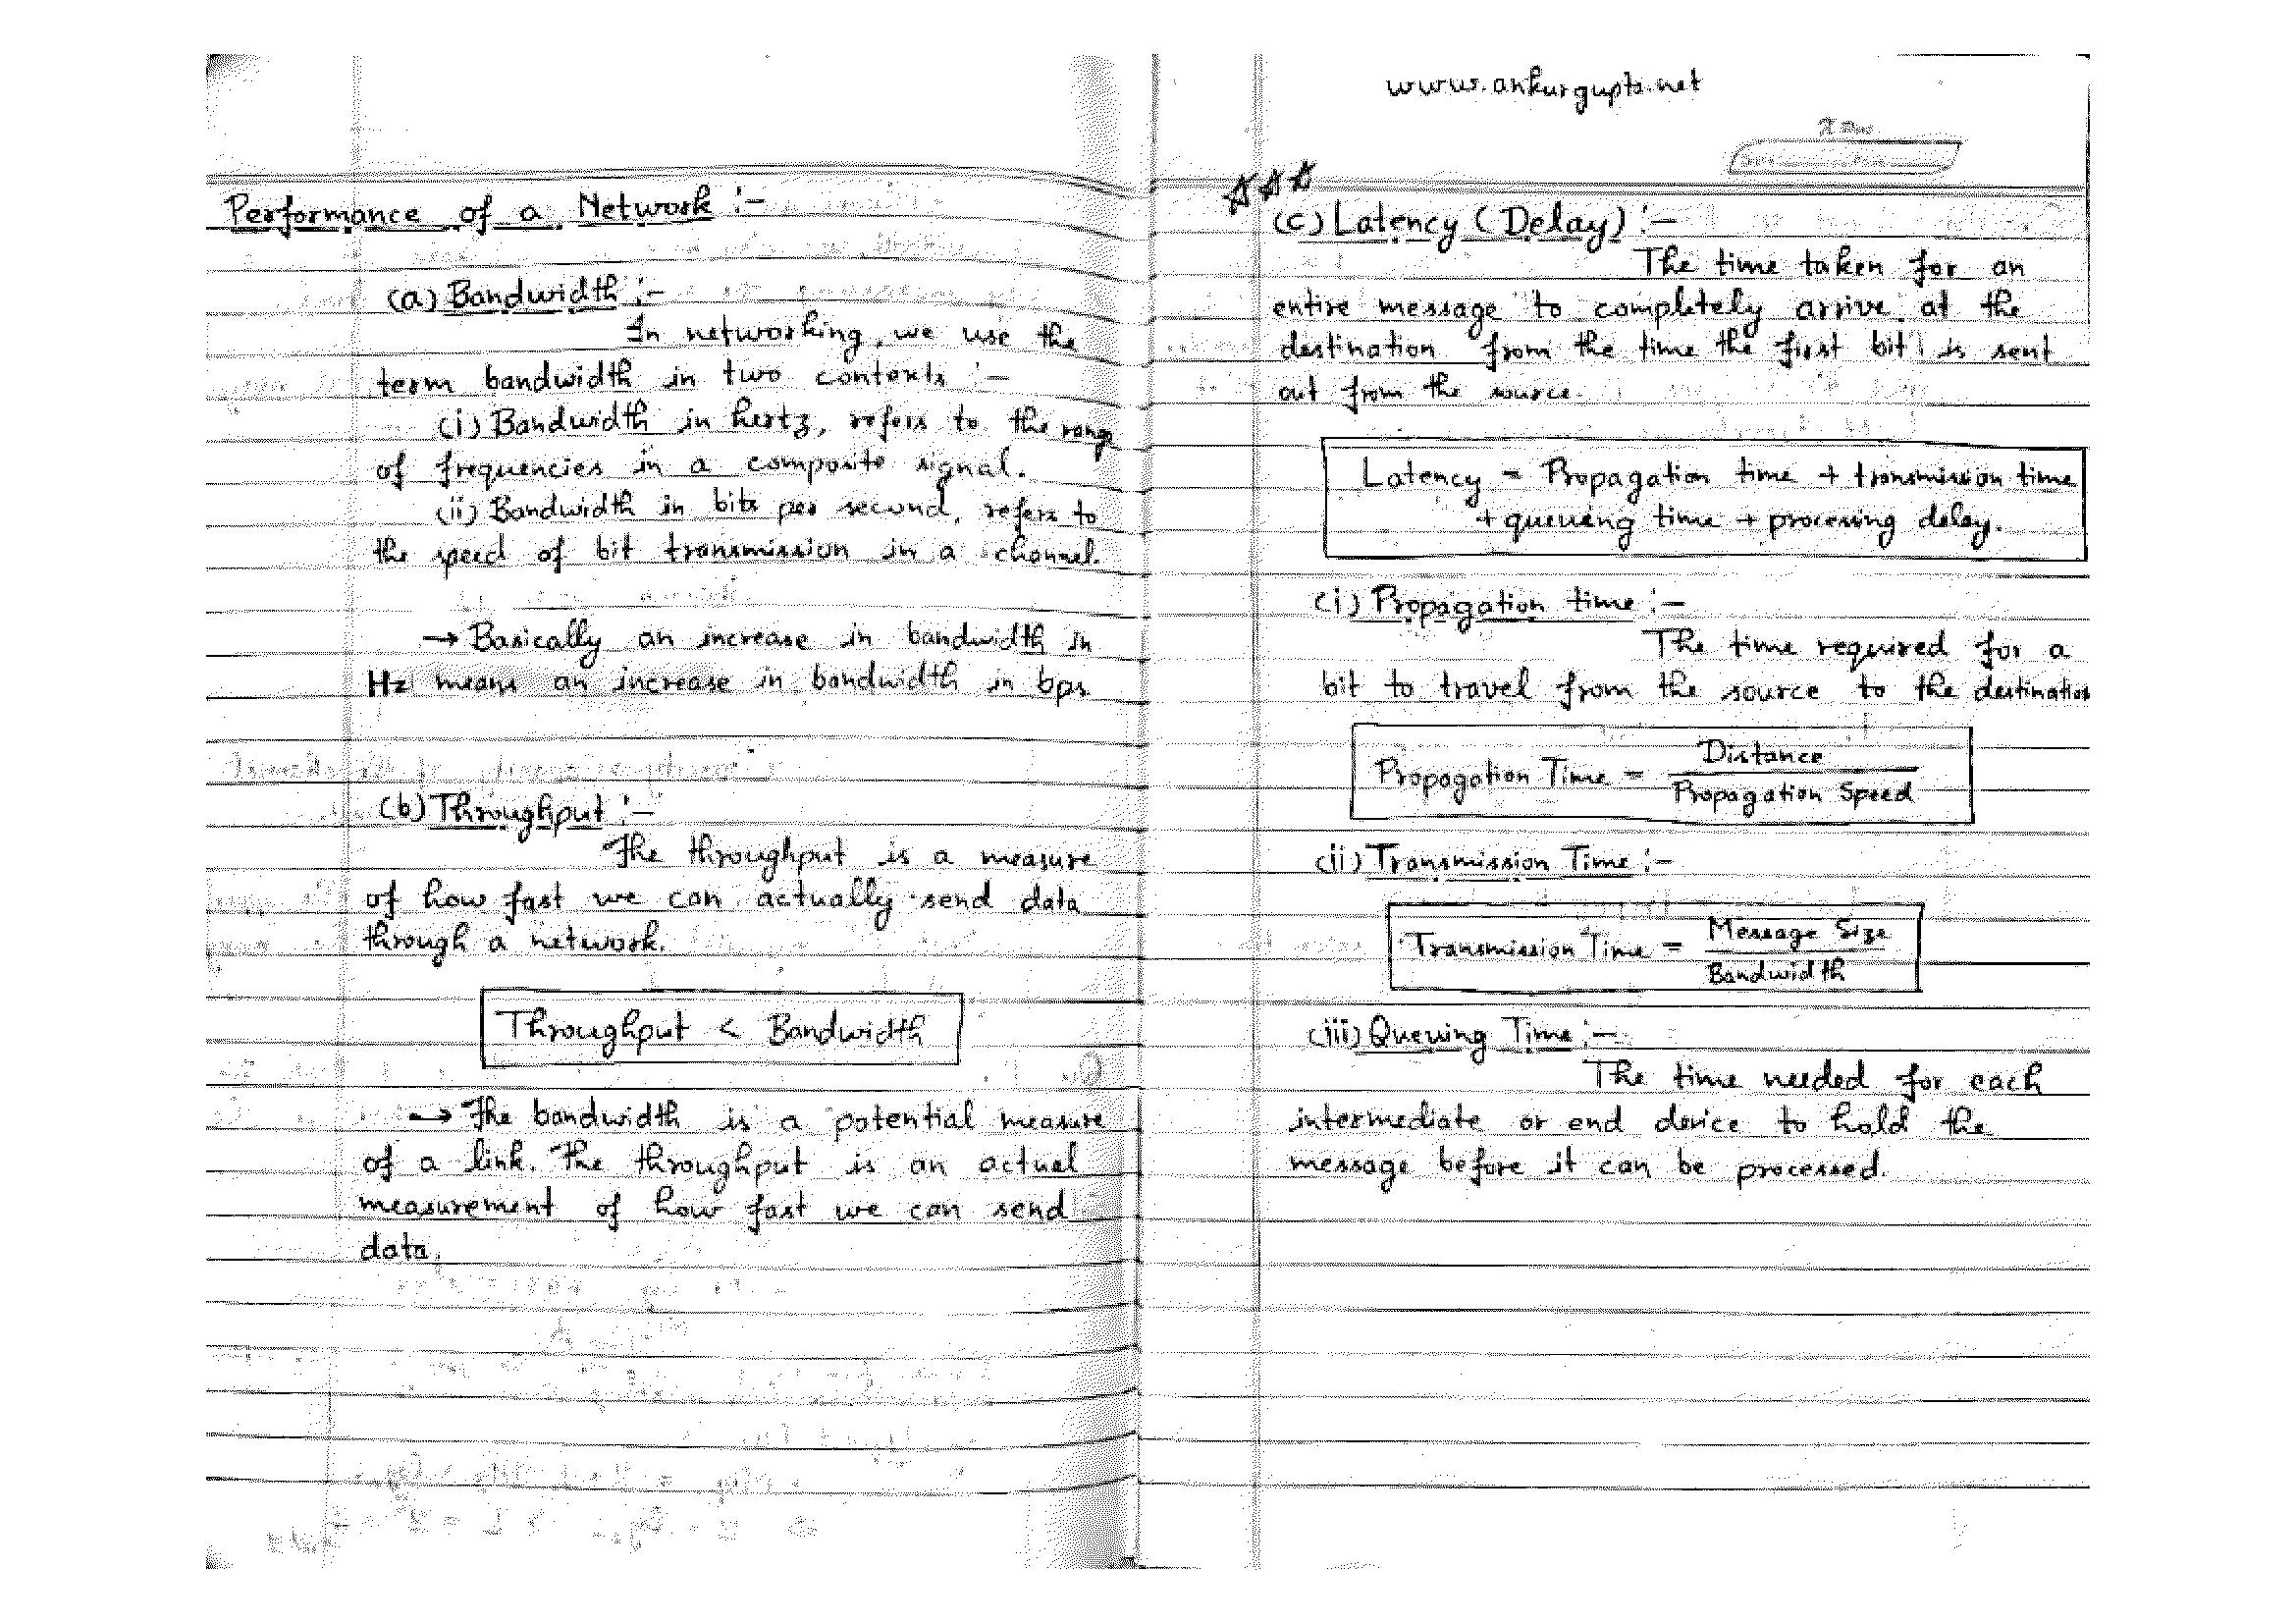 Performance of a Network :-
(a) Bandwidth :-
In networking, we use the
term bandwidth in two contexts :-
(i) Bandwidth in hertz, refers to the range
of frequencies in a composite signal.
(ii) Bandwidth in bits per second, refers to
the speed of bit transmission in a channel.
→ Basically an increase in bandwidth in
Hz means an increase in bandwidth in bps
(b) Throughput :-
The throughput is a measure
of how fast we can actually send data
through a network.
Throughput < Bandwidth
→ The bandwidth is a potential measure
of a link. The throughput is an actual
measurement of how fast we can send
data.
www.ankurgupta.net
(c) Latency (Delay) :-
The time taken for an
entire message to completely arrive at the
destination from the time the first bit is sent
out from the source.
Latency = Propagation time + transmission time
+ queuing time + processing delay.
(i) Propagation time :-
The time required for a
bit to travel from the source to the destination
Propagation Time = Distance
Propagation Speed
(ii) Transmission Time :-
Transmission Time = Message Size
Bandwidth
(iii) Queuing Time :-
The time needed for each
intermediate or end device to hold the
message before it can be processed.